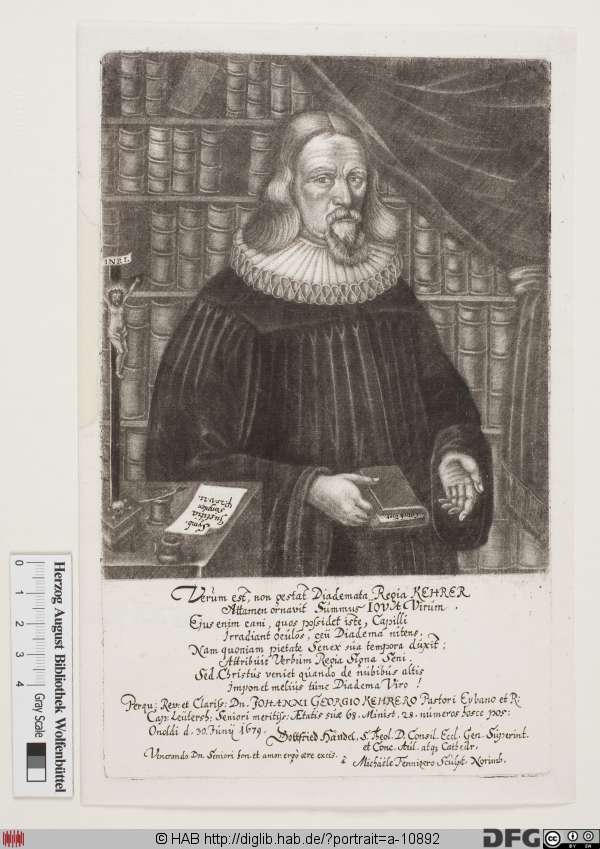 INRI
Symb.
Justitia
Simplex
Verum est, non gestat Diademata Regia KEHRER
Attamen ornavit Summus IOVA Virum.
Ejus enim cani, quos possidet iste, Capilli
Irradiant oculos, ceu Diadema nitens,
Nam quoniam pietate Senex sua tempora duxit;
Attribuit Verbum Regia Signa Seni.
Sed Christus veniet quando de nubibus altis
Imponet melius tunc Diadema Viro!
Perqu: Rev: et Clariss: Dn. JOHANNI GEORGIO KEHRERO Pastori Eybano et R:
Cap: Leutersh: Seniori meritiss: Ætatis suæ 68. Minist. 28. numeros hosce pos:
Onoldi d. 30. Junij 1679. Gottfried Händel, S. Theol. D. Consil. Eccl. Gen. Superint.
et Conc. Aul. atq; Cathedr.
Venerando Dn. Seniori hon. et amor. ergò ære excis. à Michaële Fennizero Sculpt. Norimb.
0 1 2 3 4
Herzog August Bibliothek Wolfenbüttel
Gray Scale
© HAB http://diglib.hab.de/?portrait=a-10892
DFG
cc BY SA